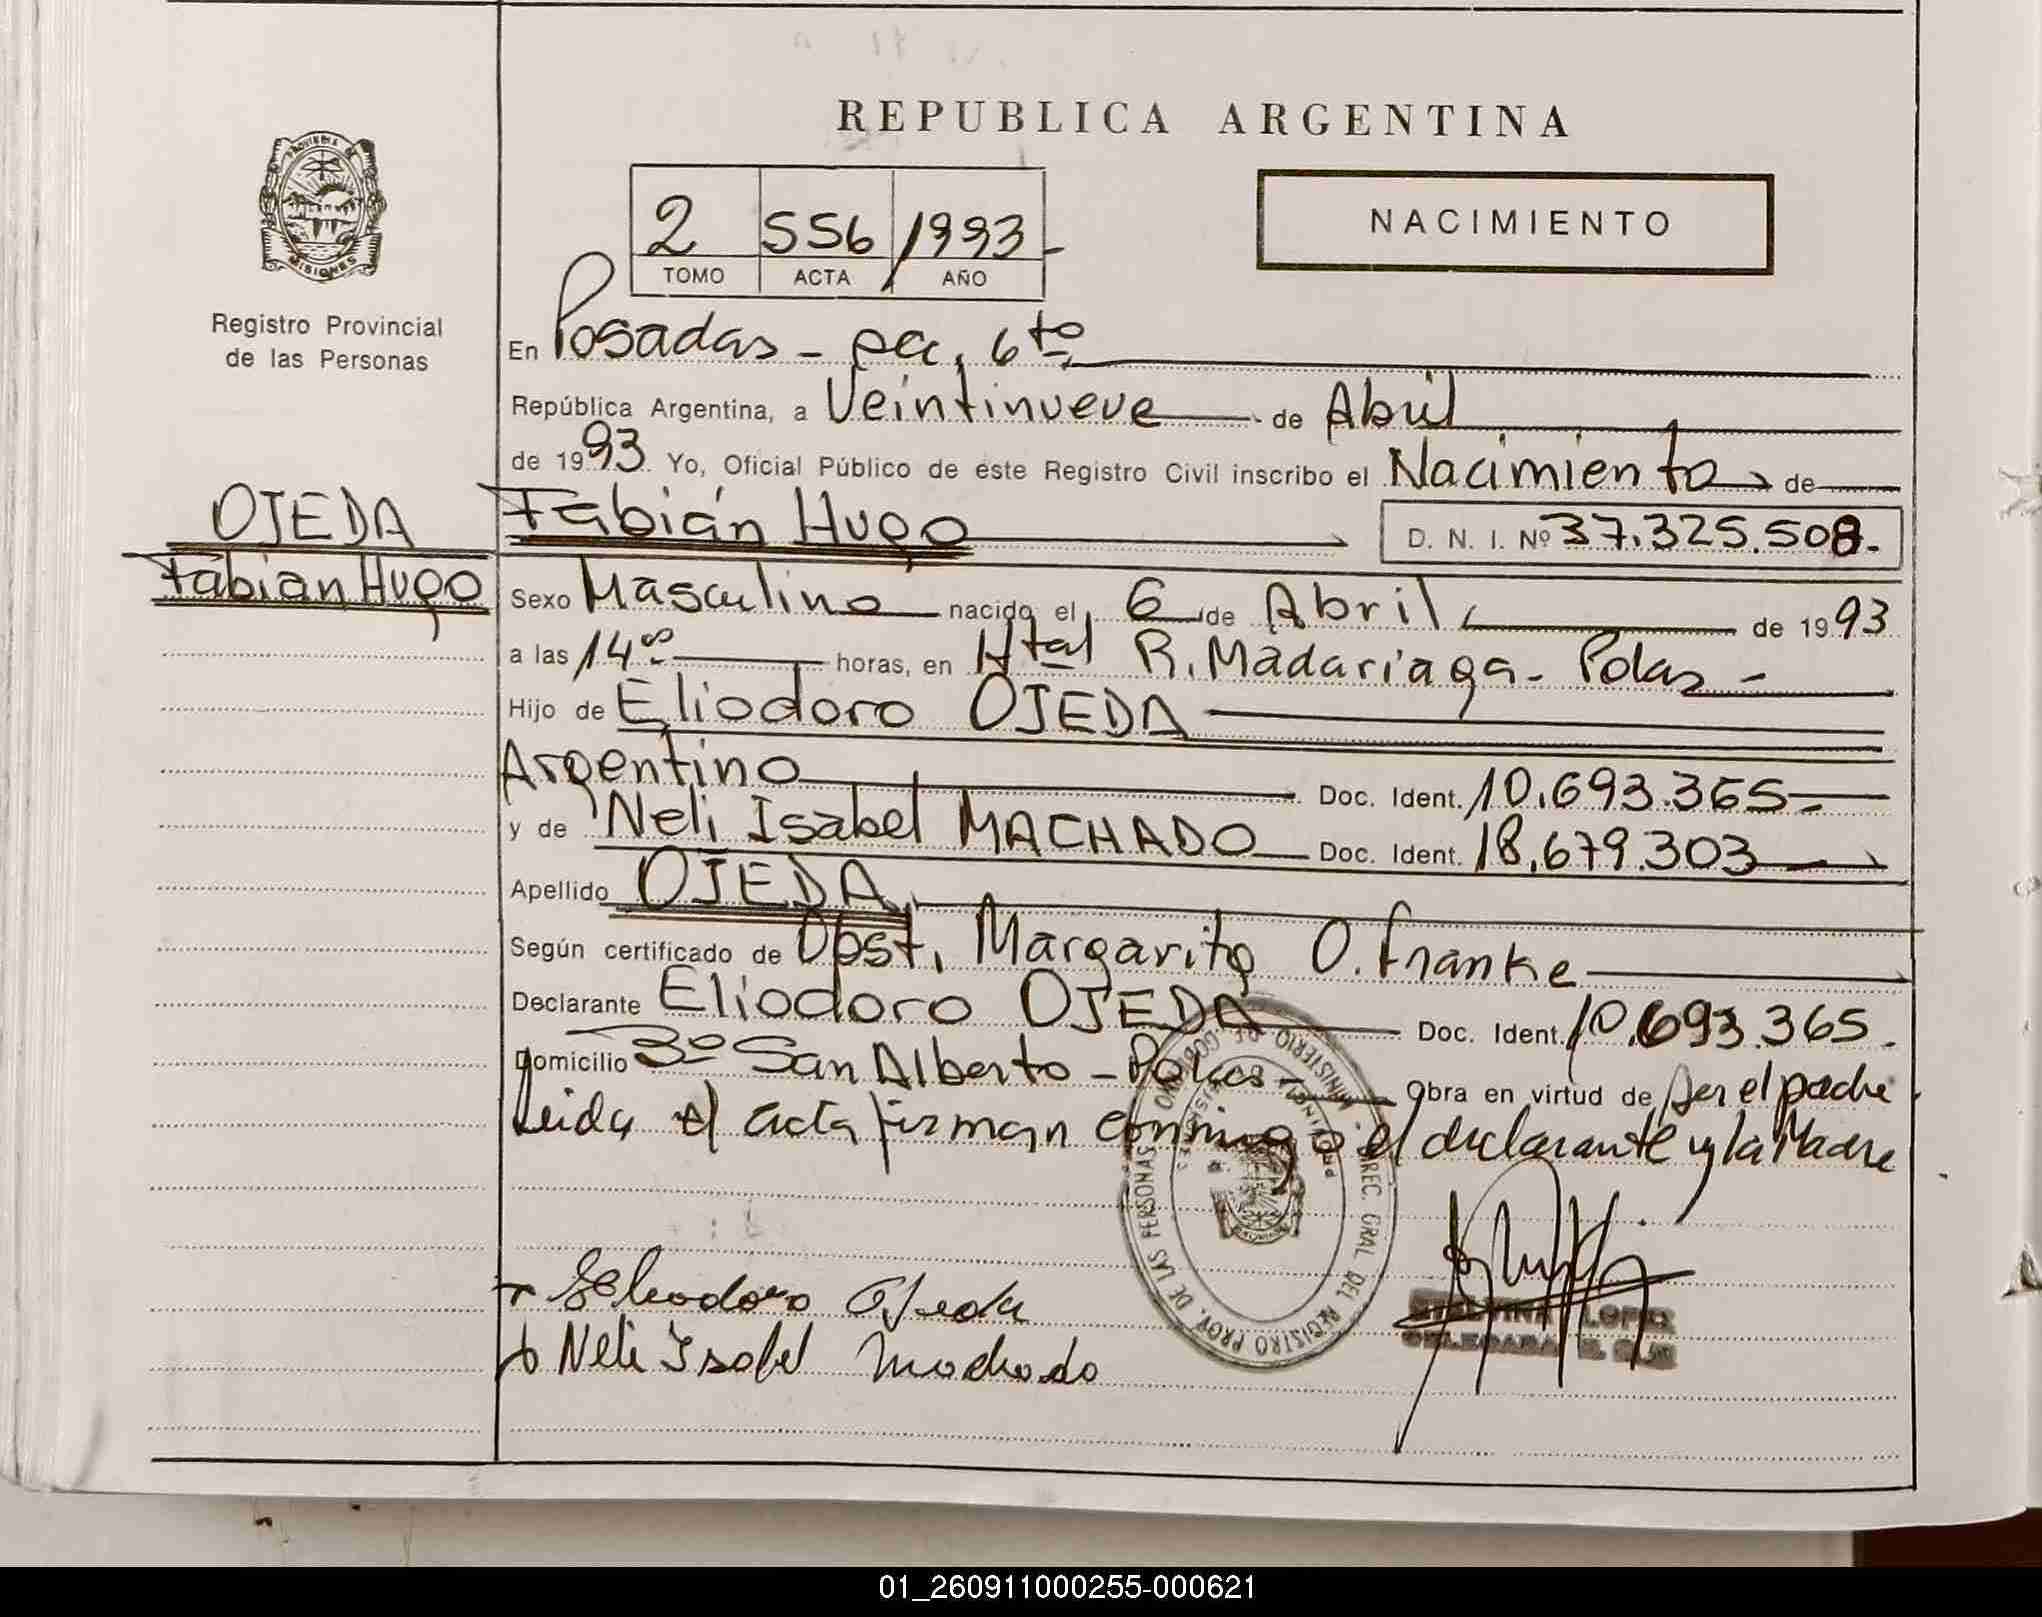 REPUBLICA ARGENTINA
PROVINCIA DE
MISIONES
Registro Provincial
de las Personas
2 556 1993-
TOMO ACTA AÑO
NACIMIENTO
En Posadas - 6to
República Argentina, a Veintinueve de Abril
de 1993. Yo, Oficial Público de este Registro Civil inscribo el Nacimiento de
OJEDA
Fabián Hugo
Fabián Hugo D. N. I. Nº 37.325.508.-
Sexo Masculino nacido el 6 de Abril de 1993
a las 14 horas, en Htal R. Madariaga - Pdas -
Hijo de Eliodoro OJEDA
Argentino Doc. Ident. 10.693.365-
y de Neli Isabel MACHADO Doc. Ident. 18.679.303
Apellido OJEDA
Según certificado de Obst. Margarita O. Franke
Declarante Eliodoro OJEDA Doc. Ident. 10.693.365.
Domicilio Bº San Alberto - Pdas - Obra en virtud de ser el padre
Leida el acta firman conmigo el declarante y la Madre
MINISTERIO DE GOBIERNO
DIREC. GRAL DEL REGISTRO PROV. DE LAS PERSONAS
Eleodoro Ojeda
Neli Isabel Machado
LOPEZ
01_260911000255-000621